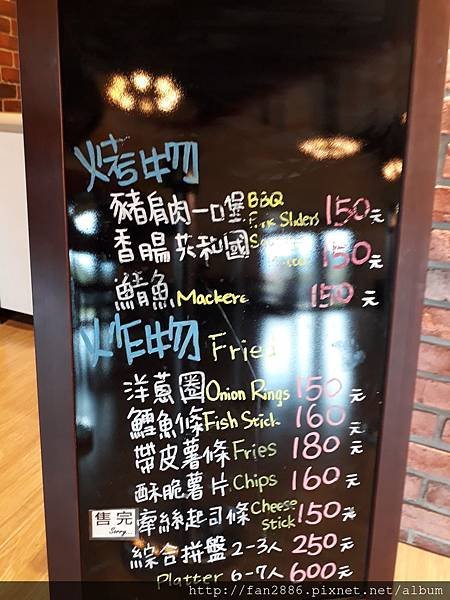 烤物
豬肩肉一口堡 BBQ Pork Sliders 150元
香腸共和國 150元
鯖魚 Mackere 150元
炸物 Fried
洋蔥圈 Onion Rings 150元
鱈魚條 Fish Stick 160元
帶皮薯條 Fries 180元
酥脆薯片 Chips 160元
售完 Sorry
牽絲起司條 Cheese Stick 150元
綜合拼盤 2-3人 250元
Platter 6-7人 600元
http://fan2886.pixnet.net/album